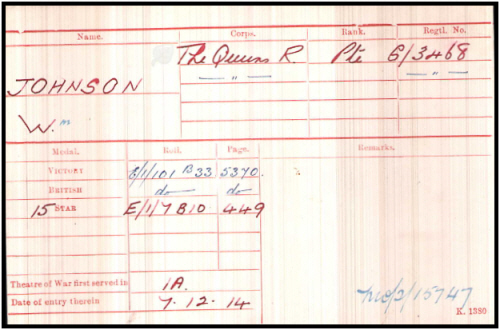 Name. Corps. Rank. Regtl. No.
The Queens R. Pte G/3468
JOHNSON — " — — " —
W.
Medal. Roll. Page. Remarks.
VICTORY G/1/101 B33 5370.
BRITISH do do
15 STAR E/1/7 B10 449
Theatre of War first served in 1A.
Date of entry therein 7.12.14
/2/15747
K. 1380